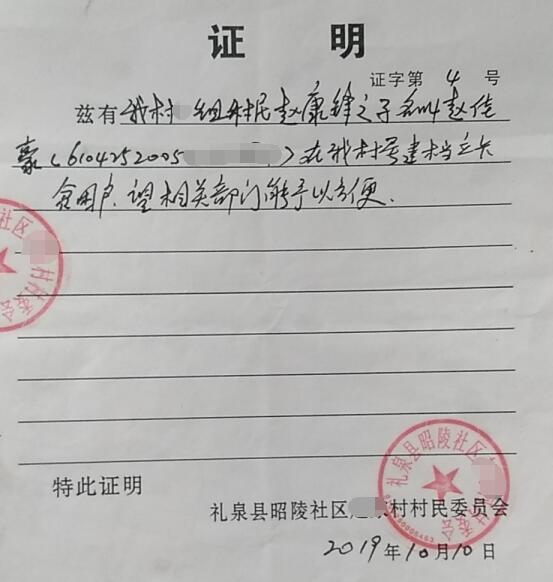 证 明
证字第 4 号
兹有我村 组村民赵康锋之子名叫赵佳
豪(6104252005 )在我村是建档立卡
贫困户.望相关部门能予以方便.
特此证明
礼泉县昭陵社区 村村民委员会
2019年10月10日
礼泉县昭陵社区
村委会
社区 村村委会